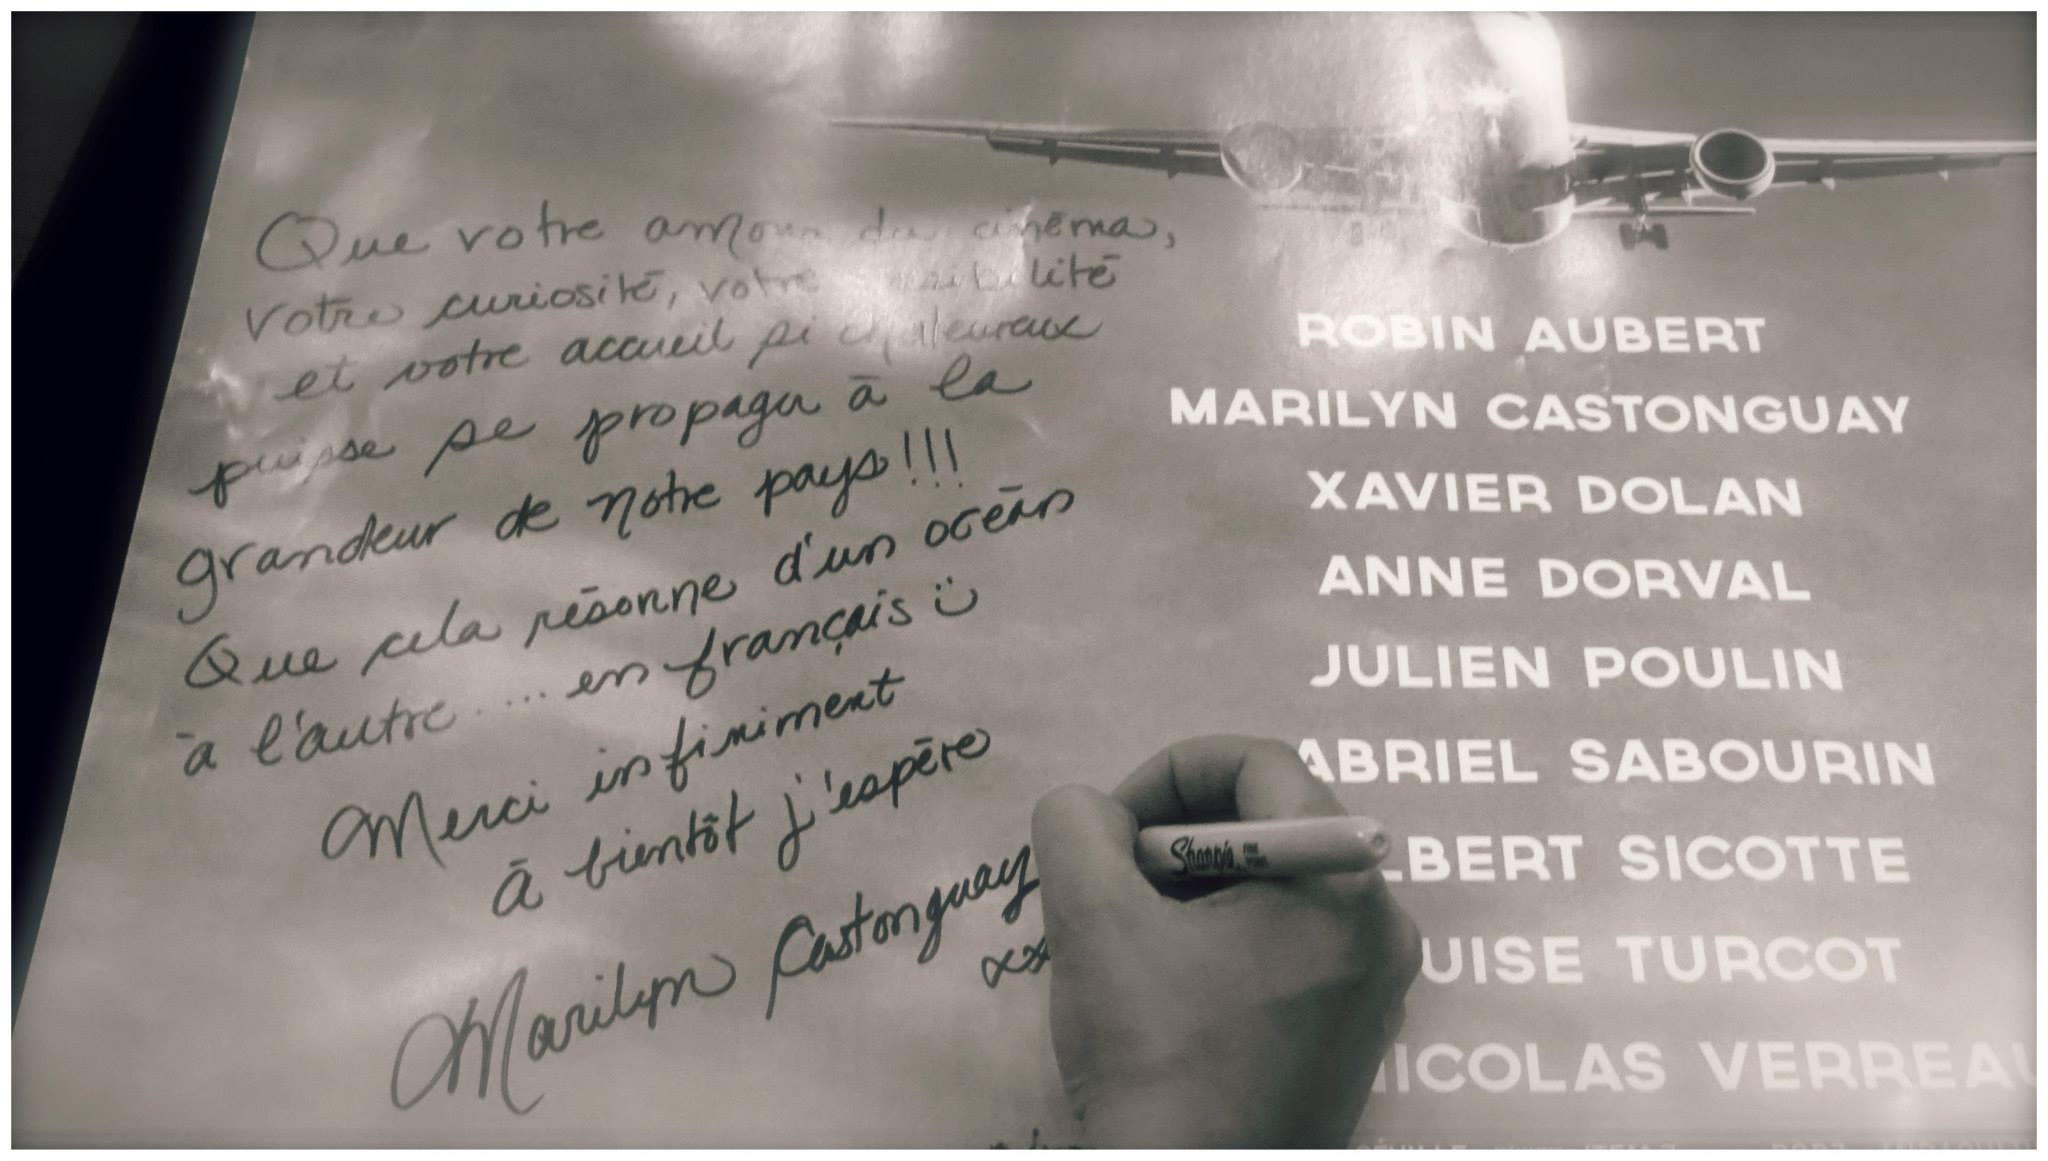 Que votre amour du cinéma,
votre curiosité, votre sensibilité
et votre accueil si chaleureux
puisse se propager à la
grandeur de notre pays!!!
Que cela résonne d'un océan
à l'autre.... en français
Merci infiniment
À bientôt j'espère
Marilyn Castonguay
xx
ROBIN AUBERT
MARILYN CASTONGUAY
XAVIER DOLAN
ANNE DORVAL
JULIEN POULIN
ABRIEL SABOURIN
LBERT SICOTTE
UISE TURCOT
NICOLAS VERREAU
Sharpie